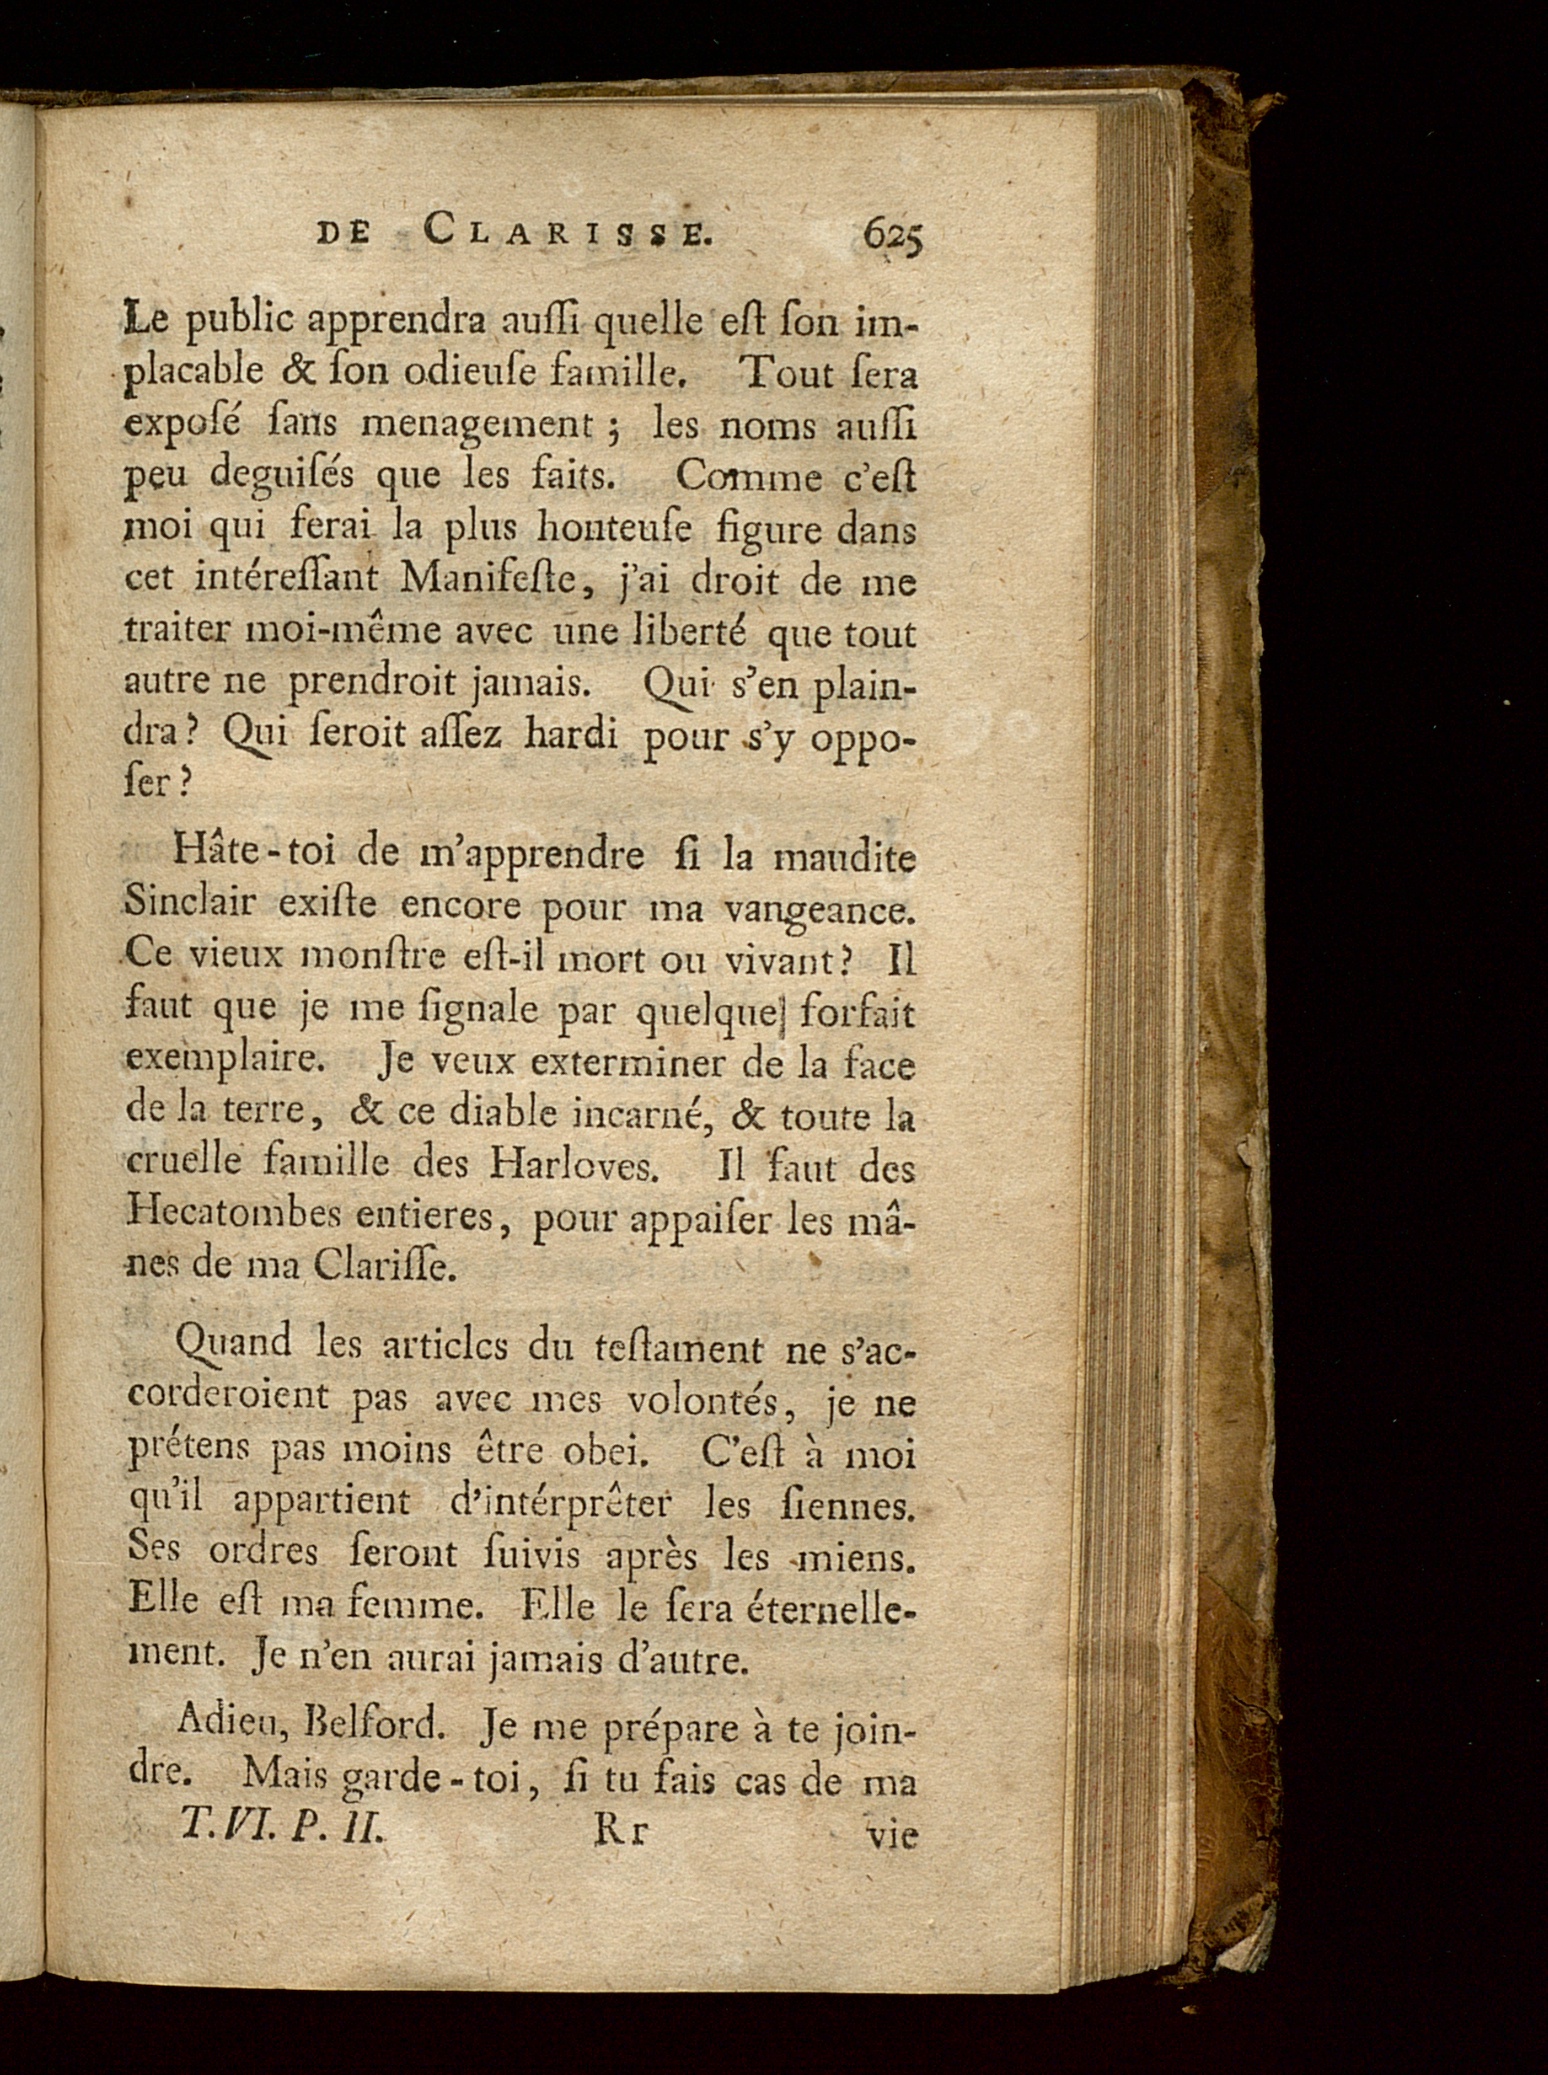 DE CLARISSE. 625
Le public apprendra auſſi quelle eſt ſon im-
placable & ſon odieuſe famille. Tout ſera
expoſé ſans menagement ; les noms auſſi
peu deguiſés que les faits. Comme c'eſt
moi qui ferai la plus honteuſe figure dans
cet intéreſſant Manifeſte, j'ai droit de me
traiter moi-même avec une liberté que tout
autre ne prendroit jamais. Qui s'en plain-
dra? Qui ſeroit aſſez hardi pour s'y oppo-
ſer ?
Hâte-toi de m'apprendre ſi la maudite
Sinclair exiſte encore pour ma vangeance.
Ce vieux monſtre eſt-il mort ou vivant? Il
faut que je me ſignale par quelque forfait
exemplaire. Je veux exterminer de la face
de la terre, & ce diable incarné, & toute la
cruelle famille des Harloves. Il faut des
Hecatombes entieres, pour appaiſer les mâ-
nes de ma Clariſſe.
Quand les articles du teſtament ne s'ac-
corderoient pas avec mes volontés, je ne
prétens pas moins être obei. C'eſt à moi
qu'il appartient d'intérprêter les ſiennes.
Ses ordres ſeront ſuivis après les miens.
Elle eſt ma femme. Elle le ſera éternelle-
ment. Je n'en aurai jamais d'autre.
Adieu, Belford. Je me prépare à te join-
dre. Mais garde-toi, ſi tu fais cas de ma
T. VI. P. II. Rr vie